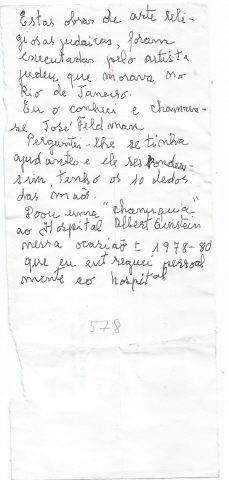 Estas obras de arte reli-
giosas judaicas, foram
executadas pelo artista
judeu que morava no
Rio de Janeiro.
Eu o conheci e chamava-
se José Feldman
Perguntei-lhe se tinha
ajudantes e ele respondeu
sim, tenho os 10 dedos
das mãos.
Doou uma "chanuquiá"
ao Hospital Albert Einstein
nessa ocasião ± 1978-80
que eu entreguei pessoal
mente ao hospital
578